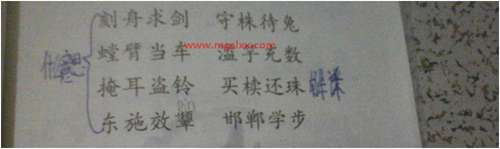 刻舟求剑 守株待兔
www.
螳臂当车 滥竽充数
掩耳盗铃 买椟还珠
东施效颦 邯郸学步